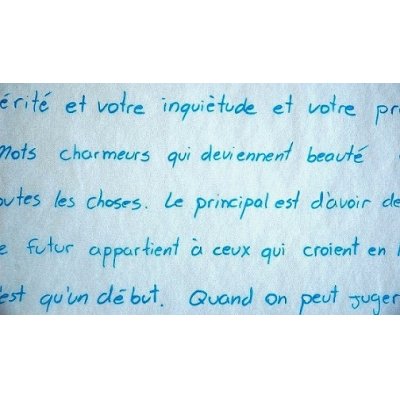 érité et votre inquiètude et votre pr
mots charmeurs qui deviennent beauté
outes les choses. Le principal est d'avoir de
e futur appartient à ceux qui croient en
'est qu'un début. Quand on peut juger